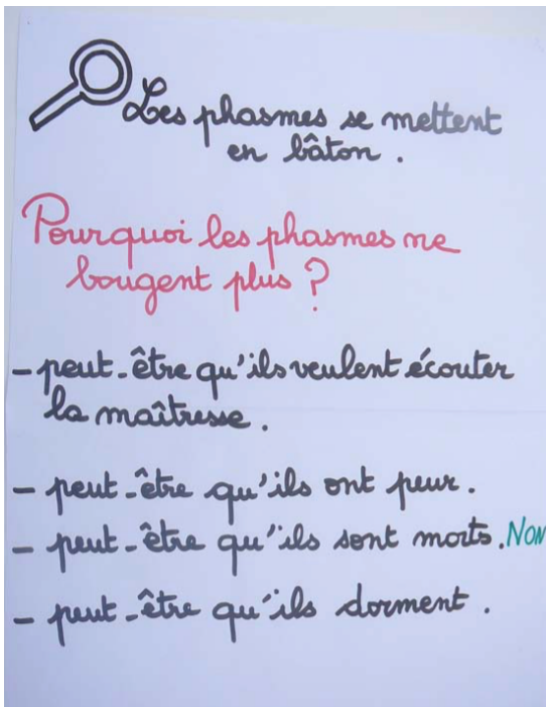 Les phasmes se mettent
en bâton.
Pourquoi les phasmes ne
bougent plus ?
- peut-être qu'ils veulent écouter
la maîtresse.
- peut-être qu'ils ont peur.
- peut-être qu'ils sont morts. NON
- peut-être qu'ils dorment.